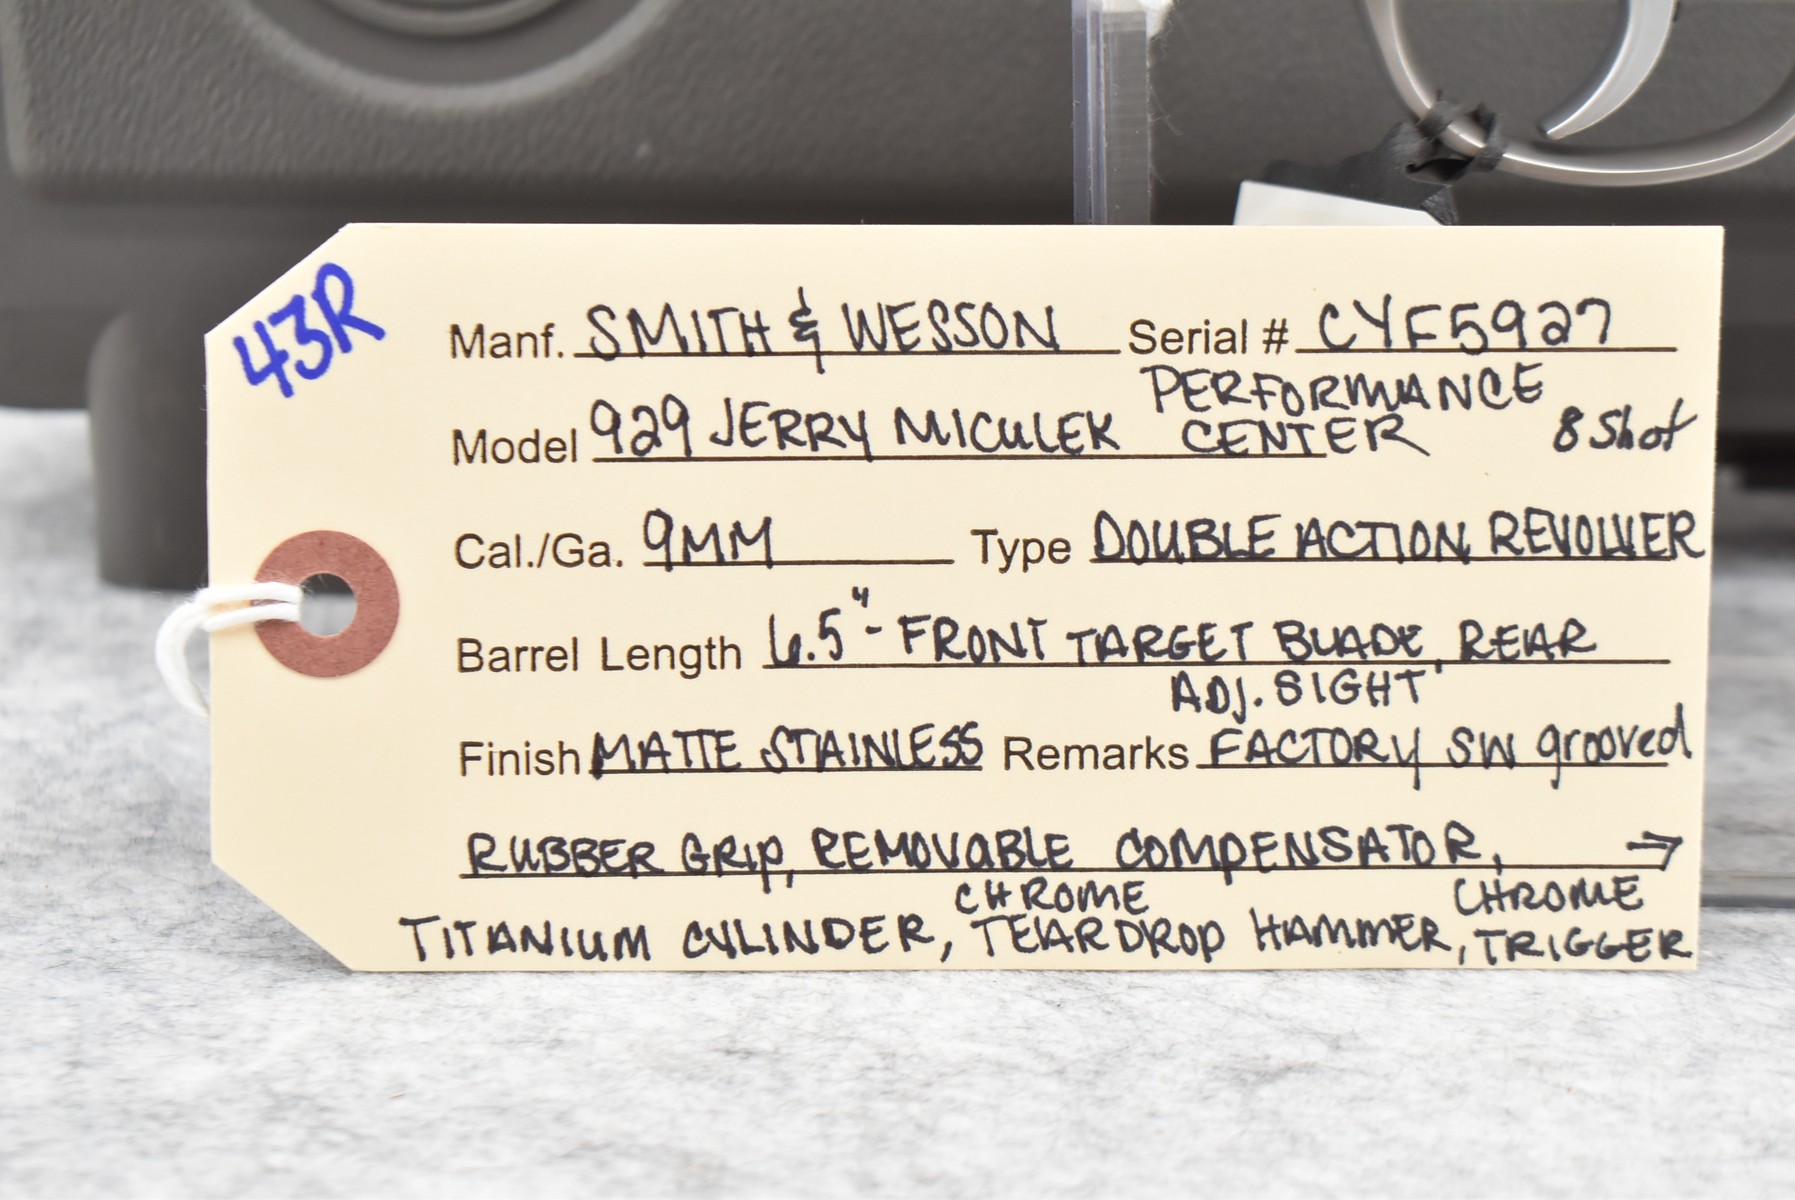 43R
Manf. SMITH & WESSON Serial # CYF5927
Model 929 JERRY MICULEK PERFORMANCE CENTER 8 Shot
Cal./Ga. 9MM Type DOUBLE ACTION REVOLVER
Barrel Length 6.5" - FRONT TARGET BLADE, REAR
ADJ. SIGHT
Finish MATTE STAINLESS Remarks FACTORY SW grooved
RUBBER GRIP, REMOVABLE COMPENSATOR, →
TITANIUM CYLINDER, CHROME TEARDROP HAMMER, CHROME TRIGGER